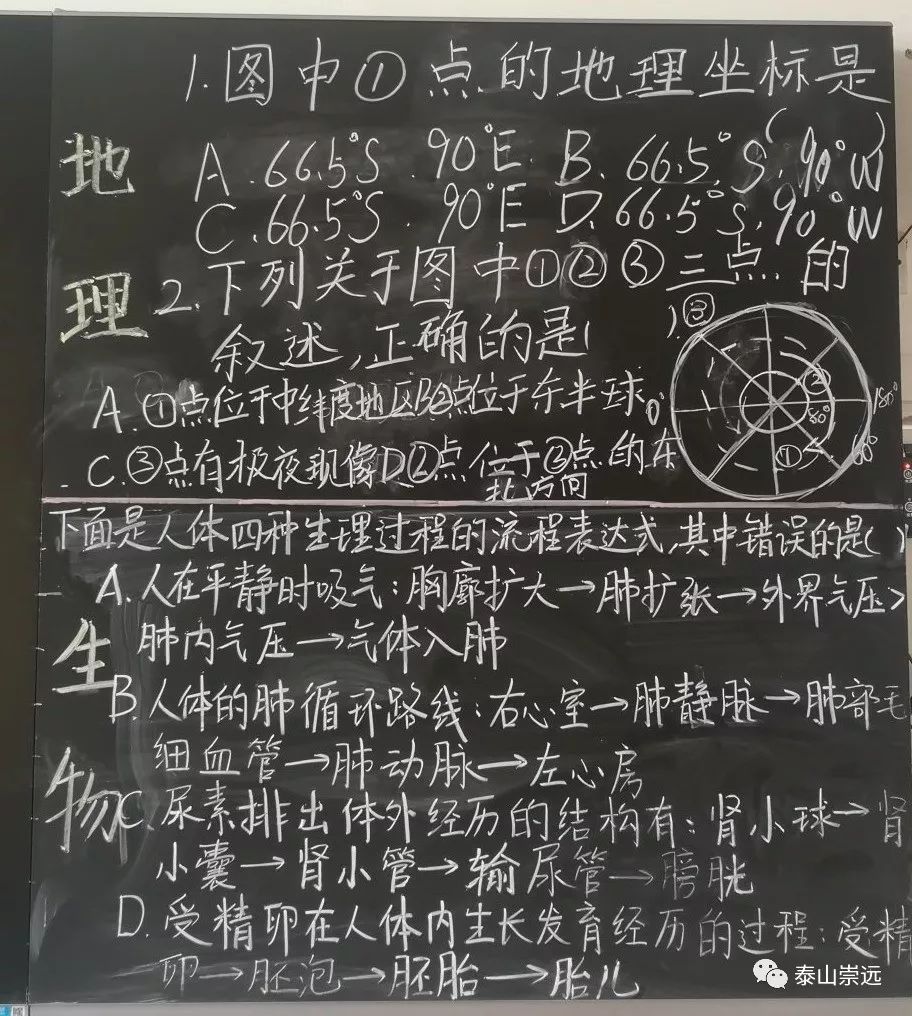 地理
1.图中①点的地理坐标是
( )
A.66.5°S.90°E. B.66.5°S.90°W
C.66.5°S.90°E D.66.5°S.90°W
2.下列关于图中①②③三点的
叙述,正确的是( )
A.①点位于中纬度地区B②点位于东半球
C.③点有极夜现像D.②点位于③点的东
北方向
③
②
①
0°
180°
80°
60°
生物
下面是人体四种生理过程的流程表达式,其中错误的是( )
A.人在平静时吸气:胸廓扩大→肺扩张→外界气压>
肺内气压→气体入肺
B.人体的肺循环路线:右心室→肺静脉→肺部毛
细血管→肺动脉→左心房
C.尿素排出体外经历的结构有:肾小球→肾
小囊→肾小管→输尿管→膀胱
D.受精卵在人体内生长发育经历的过程:受精
卵→胚泡→胚胎→胎儿
泰山崇远